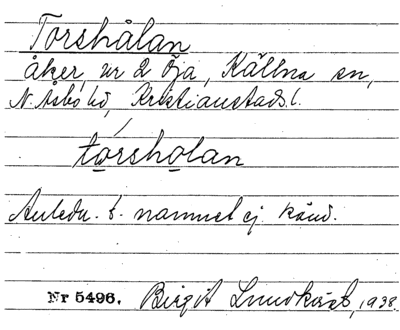 Torshålan
åker, nr 2 Öja, Källna sn,
N. Åsbo hd, Kristianstads l.
torsholan
Anledn. t. namnet ej känd.
Nr 5496. Birgit Lundkvist, 1938.